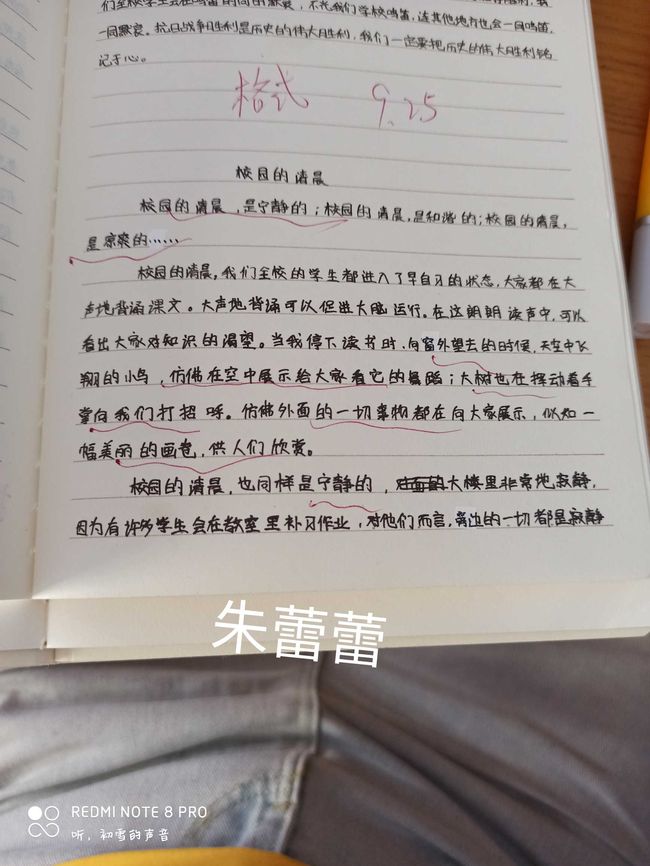 们全校学生会在鸣笛的同的默哀，不光我们学校鸣笛，连其他地方也会一同鸣笛，
一同默哀。抗日战争胜利是历史的伟大胜利，我们一定要把历史的伟大胜利铭
记于心。
格式 9.25
校园的清晨
校园的清晨，是宁静的；校园的清晨，是和谐的；校园的清晨，
是凉爽的……
校园的清晨，我们全校的学生都进入了早自习的状态，大家都在大
声地背诵课文。大声地背诵可以促进大脑运行。在这朗朗读声中，可以
看出大家对知识的渴望。当我停下读书时，向窗外望去的时候，天空中飞
翔的小鸟，仿佛在空中展示给大家看它的舞蹈；大树也在挥动着手
掌向我们打招呼。仿佛外面的一切事物都在向大家展示，似如一
幅美丽的画卷，供人们欣赏。
校园的清晨，也同样是宁静的，大楼里非常地寂静，
因为有许多学生会在教室里补习作业，对他们而言，身边的一切都是寂静
朱蕾蕾
REDMI NOTE 8 PRO
听，初雪的声音